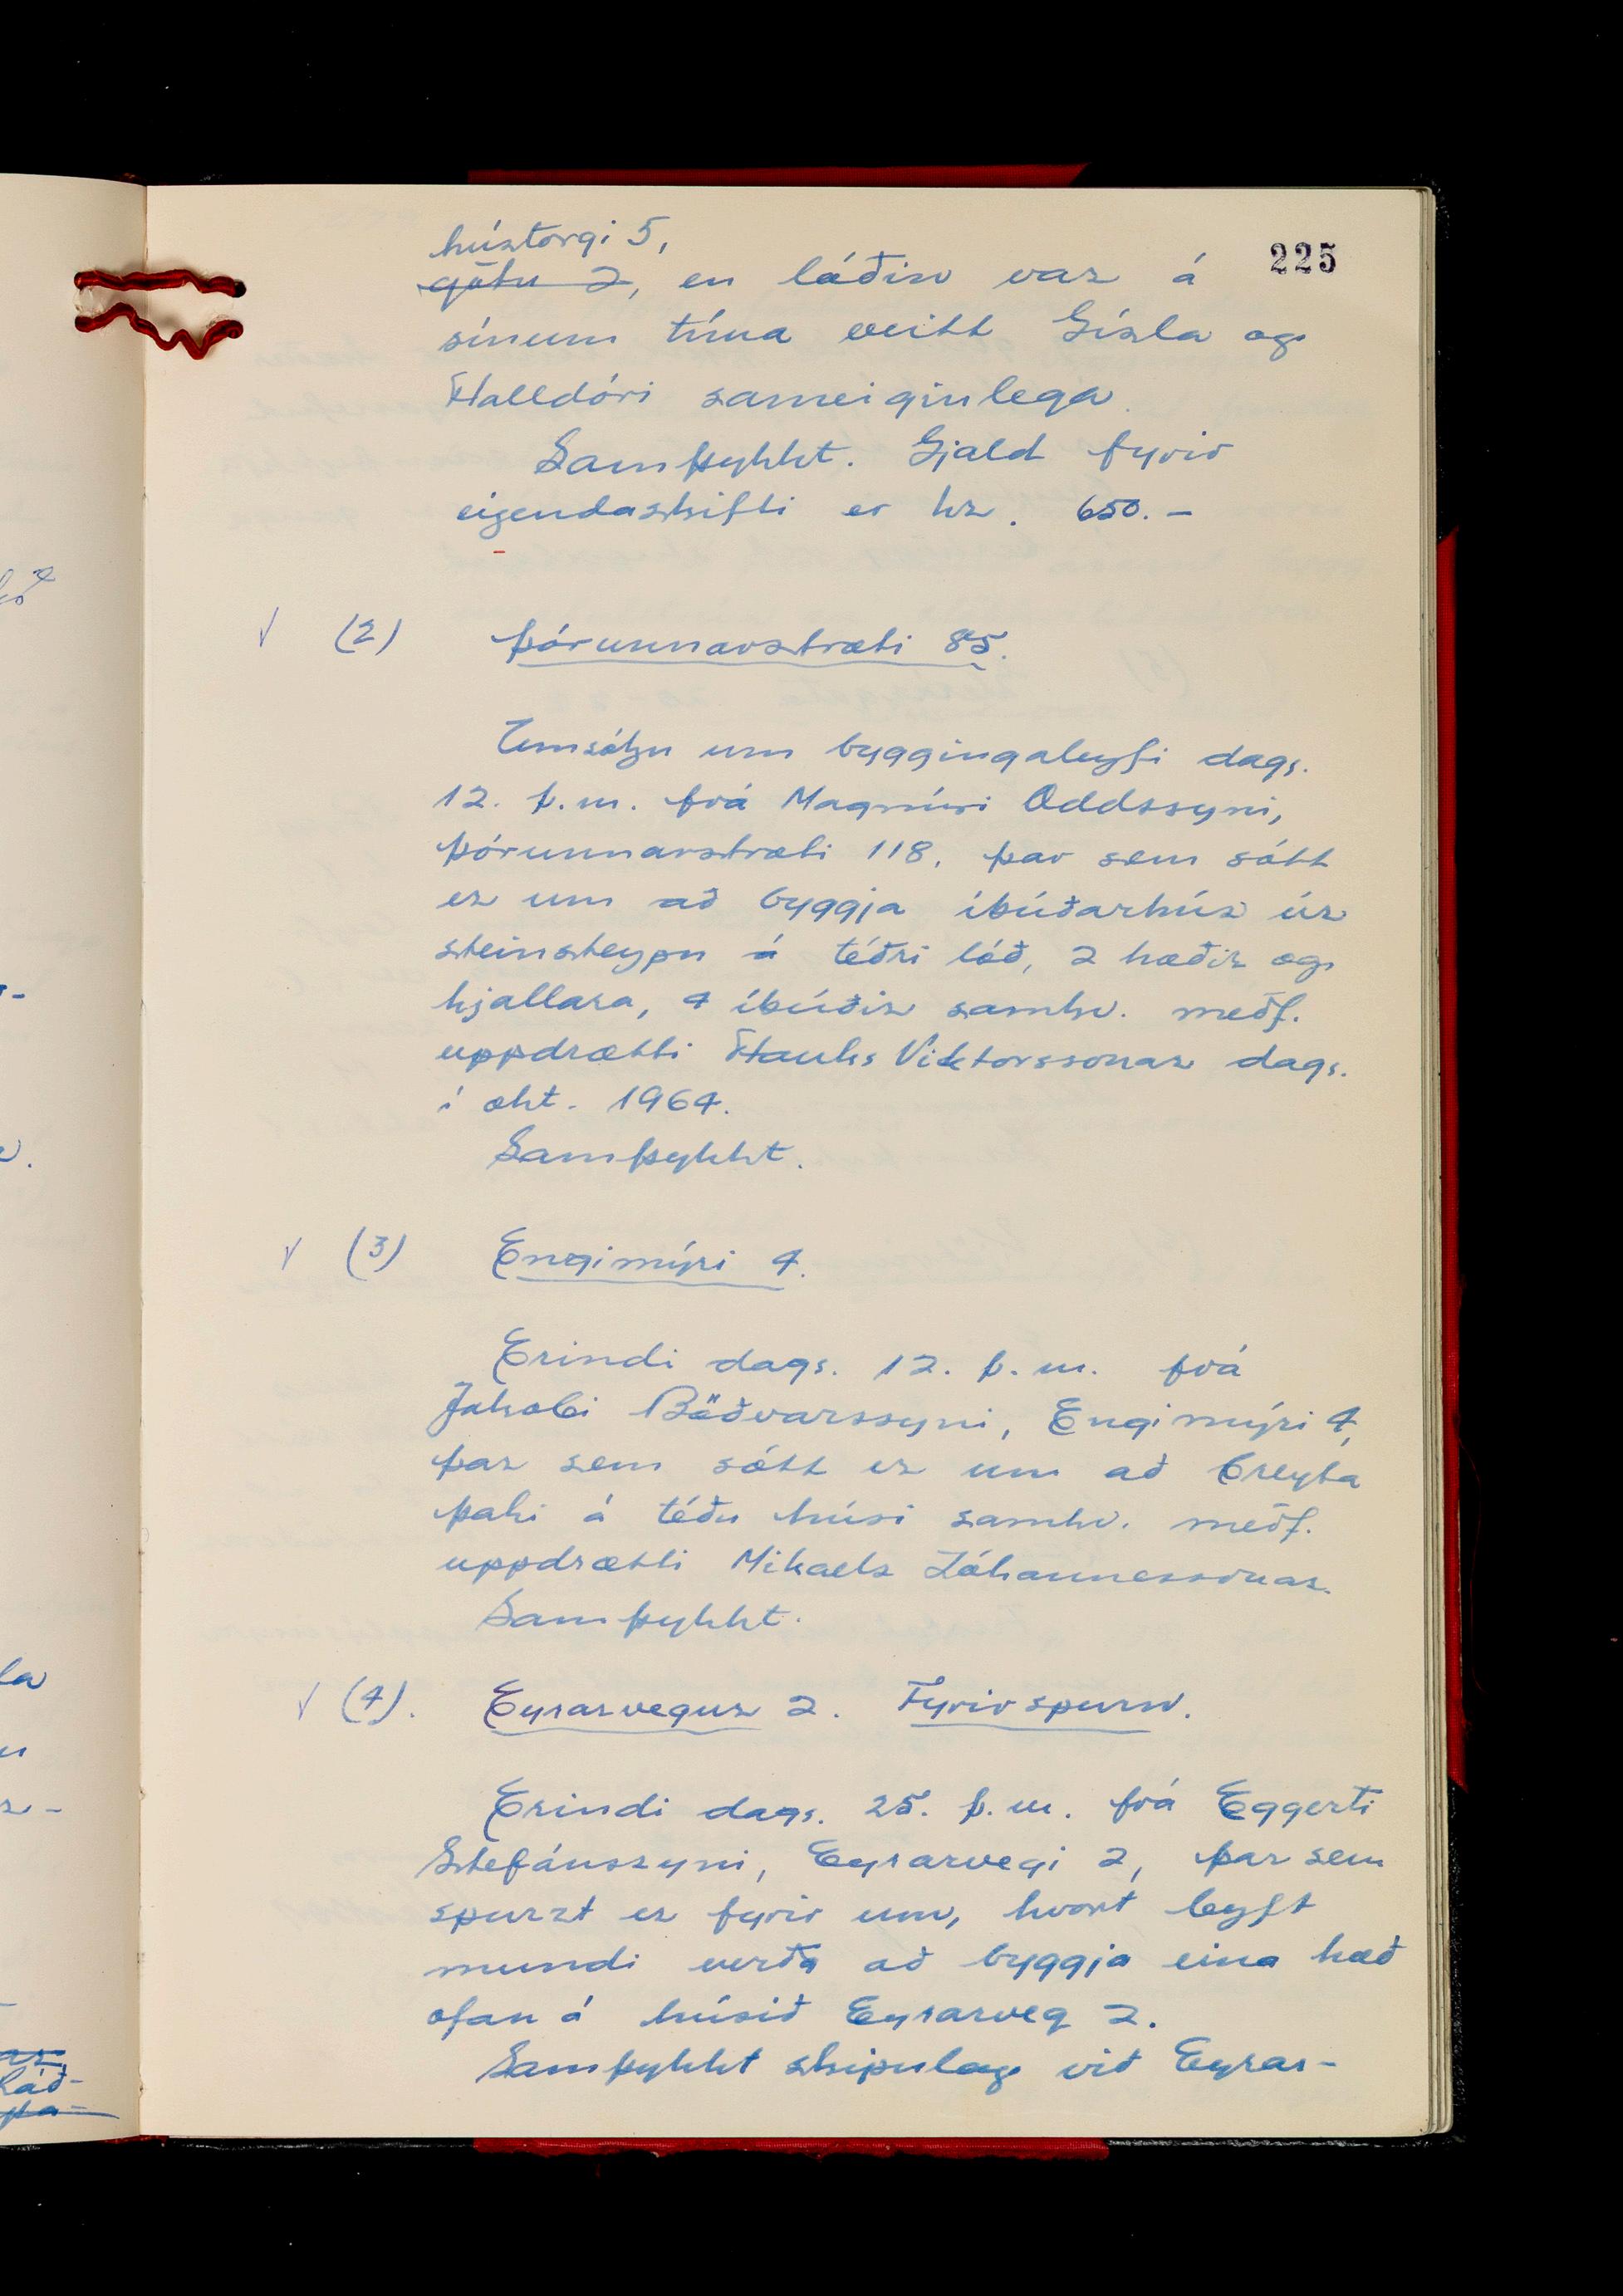 225
hústorgi 5,
götu 2, en lóðin var á
sínum tíma veitt Gísla og
Halldóri sameiginlega.
Samþykkt. Gjald fyrir
eigendaskifti er kr. 650.-
√ (2) Þórunnarstræti 85.
Umsókn um byggingaleyfi dags.
12. þ.m. frá Magnúsi Oddssyni,
Þórunnarstræti 118, þar sem sótt
er um að byggja íbúðarhús úr
steinsteypu á téðri lóð, 2 hæðir og
kjallara, 4 íbúðir samkv. meðf.
uppdrætti Hauks Viktorssonar dags.
í okt. 1964.
Samþykkt.
√ (3) Engimýri 4.
Erindi dags. 12. þ.m. frá
Jakobi Böðvarssyni, Engimýri 4,
þar sem sótt er um að breyta
þaki á téðu húsi samkv. meðf.
uppdrætti Mikaels Jóhannessonar.
Samþykkt.
√ (4). Eyrarvegur 2. Fyrirspurn.
Erindi dags. 25. þ.m. frá Eggerti
Stefánssyni, Eyrarvegi 2, þar sem
spurzt er fyrir um, hvort leyft
mundi verða að byggja eina hæð
ofan á húsið Eyrarveg 2.
Samþykkt skipulag við Eyrar-